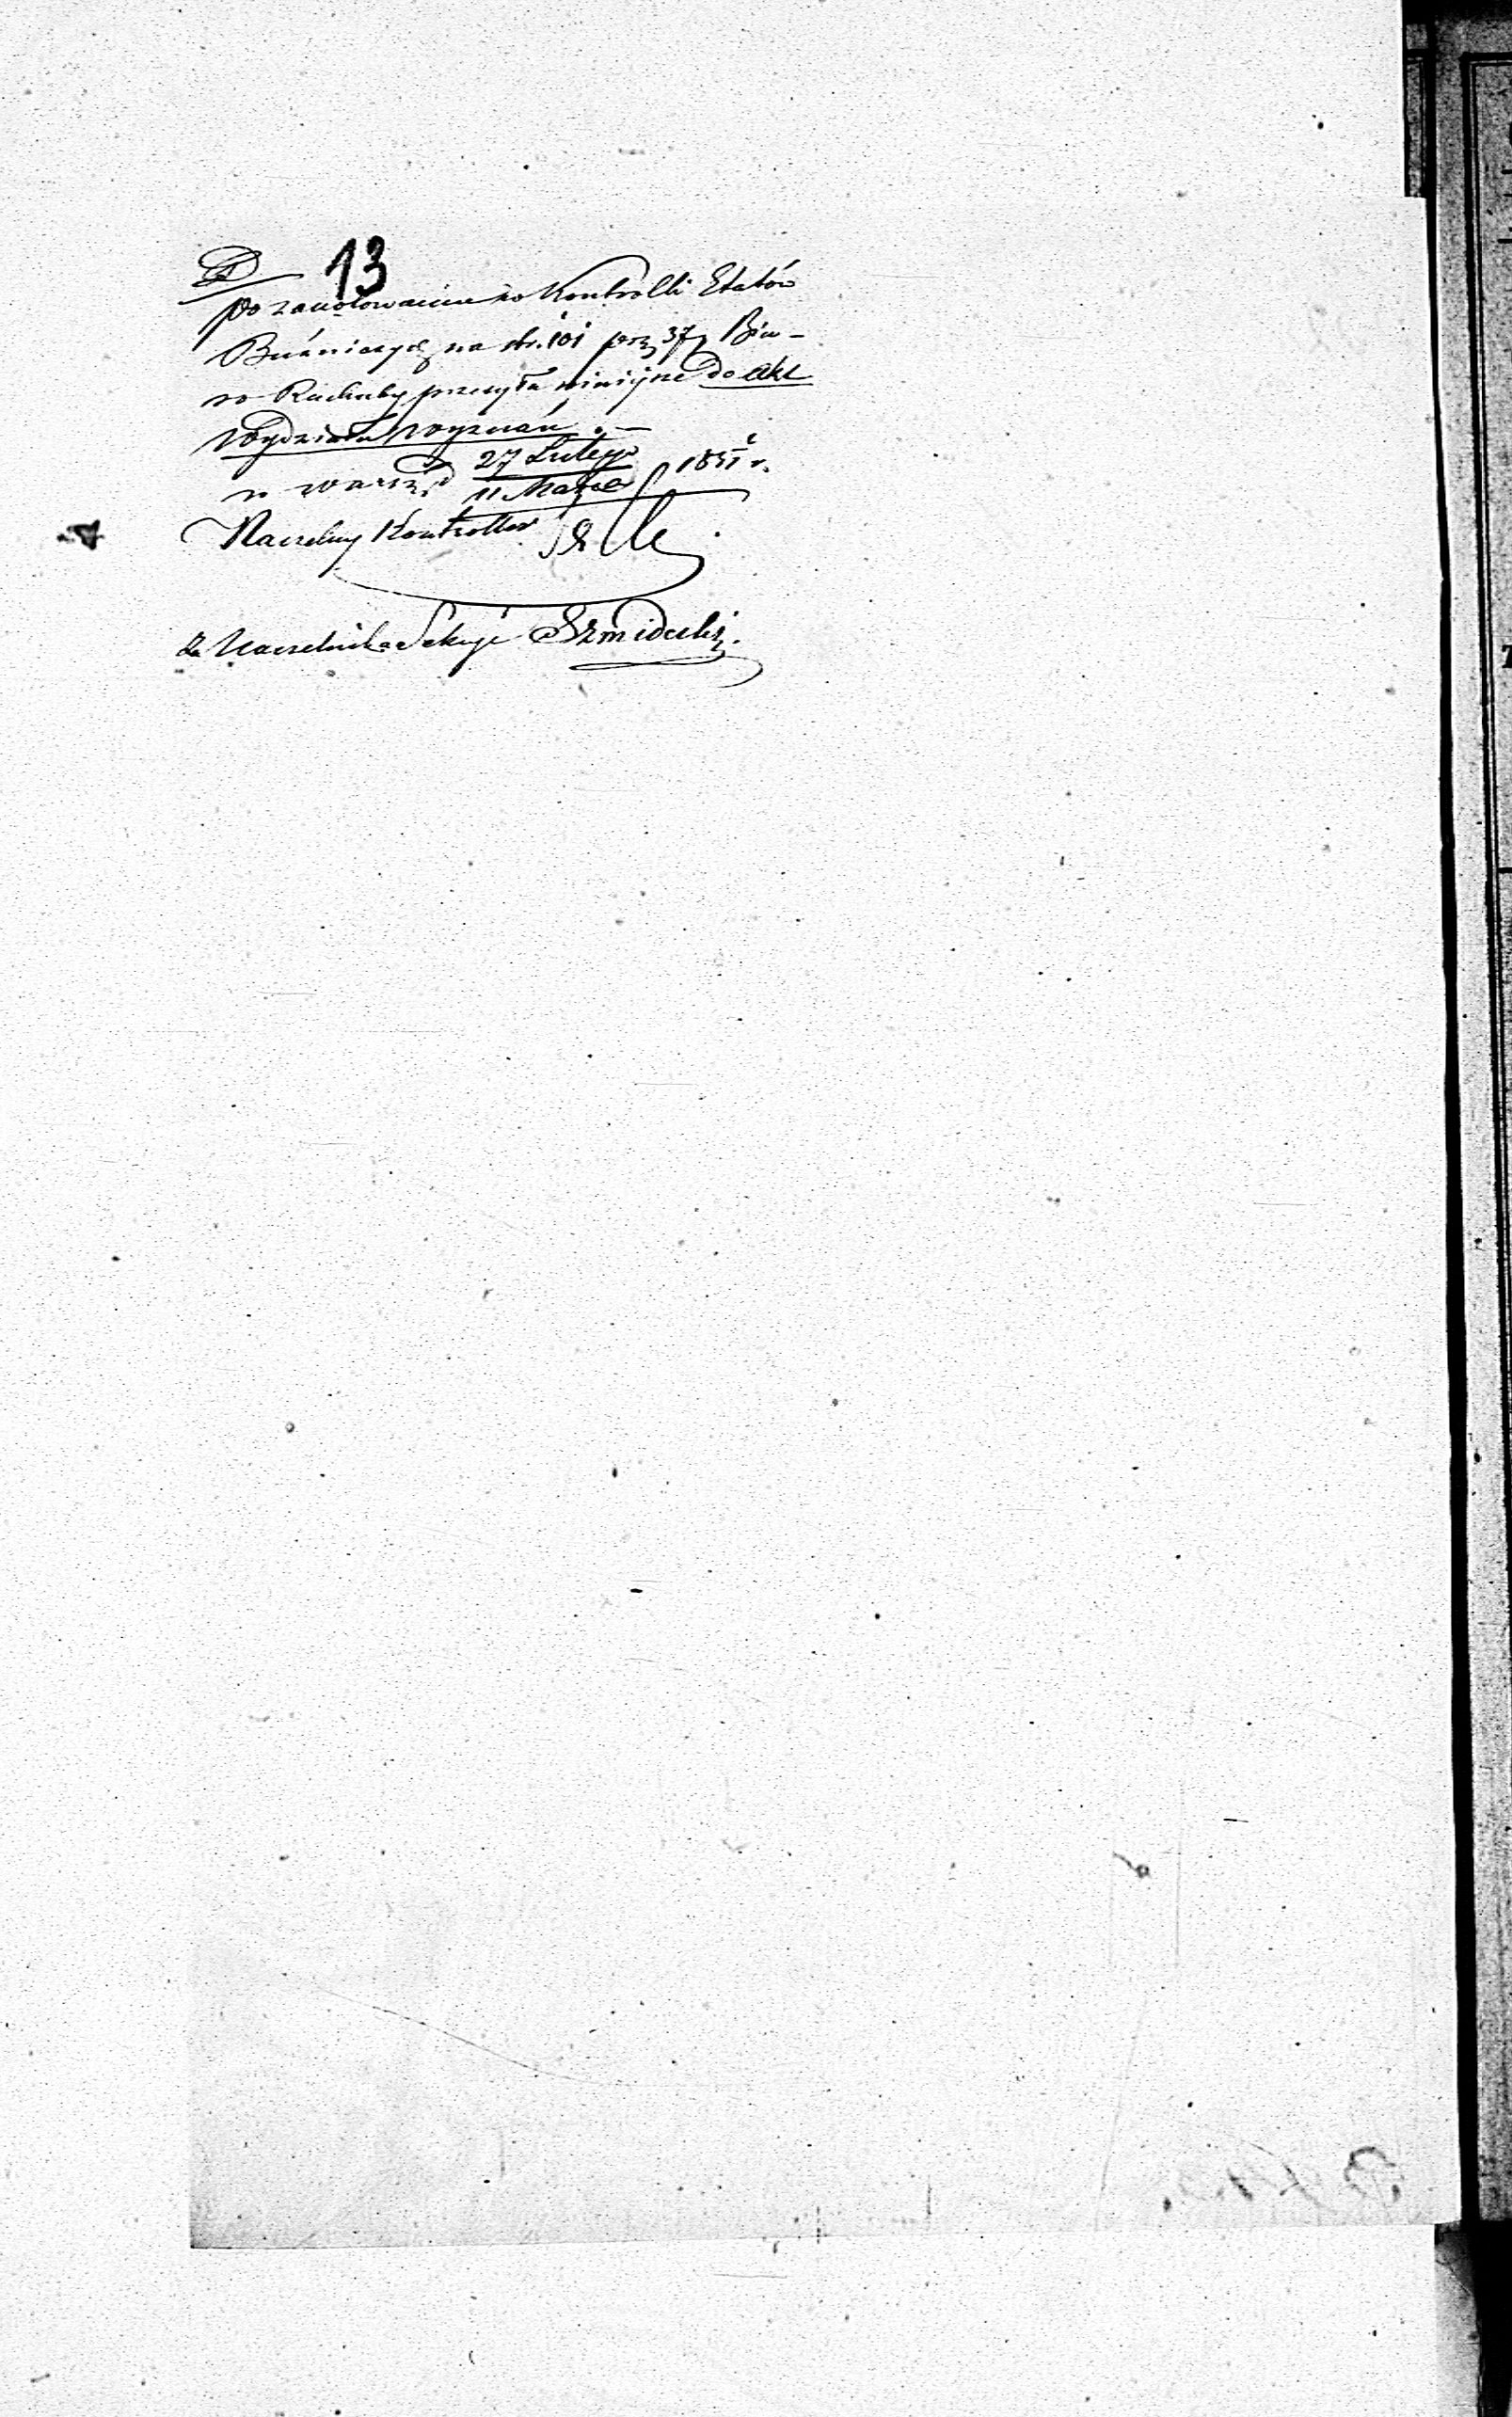 13
Po zanotowaniu w Kontrolli Etatów
Bużniczych na str. 101 poz. 37 Biu-
ro Rachuby przesyła niniejsze do akt
Wydziału Wyznań. —
w Warsz. d 27 Lutego
11 Marca 1851 r.
Naczelny Kontroller
Za Naczelnika Sekcyi Szmidecki.